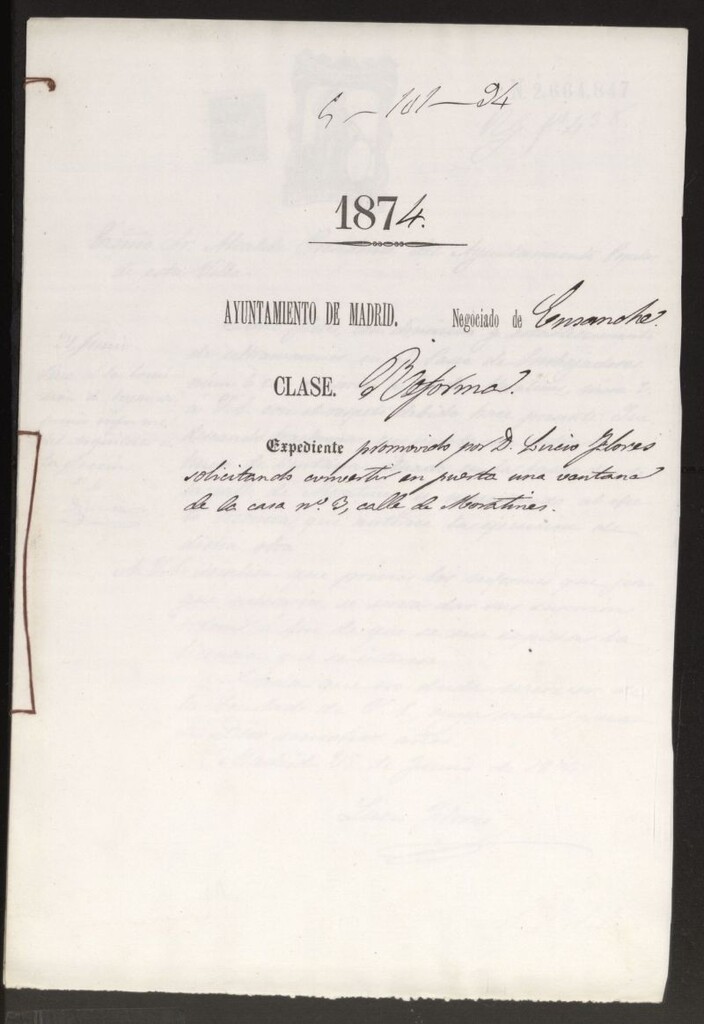 5-101-94
1874.
AYUNTAMIENTO DE MADRID. Negociado de Ensanche.
CLASE. Reforma.
Expediente promovido por D. Lucio Flores
solicitando convertir en puerta una ventana
de la casa nº 3, calle de Moratines.